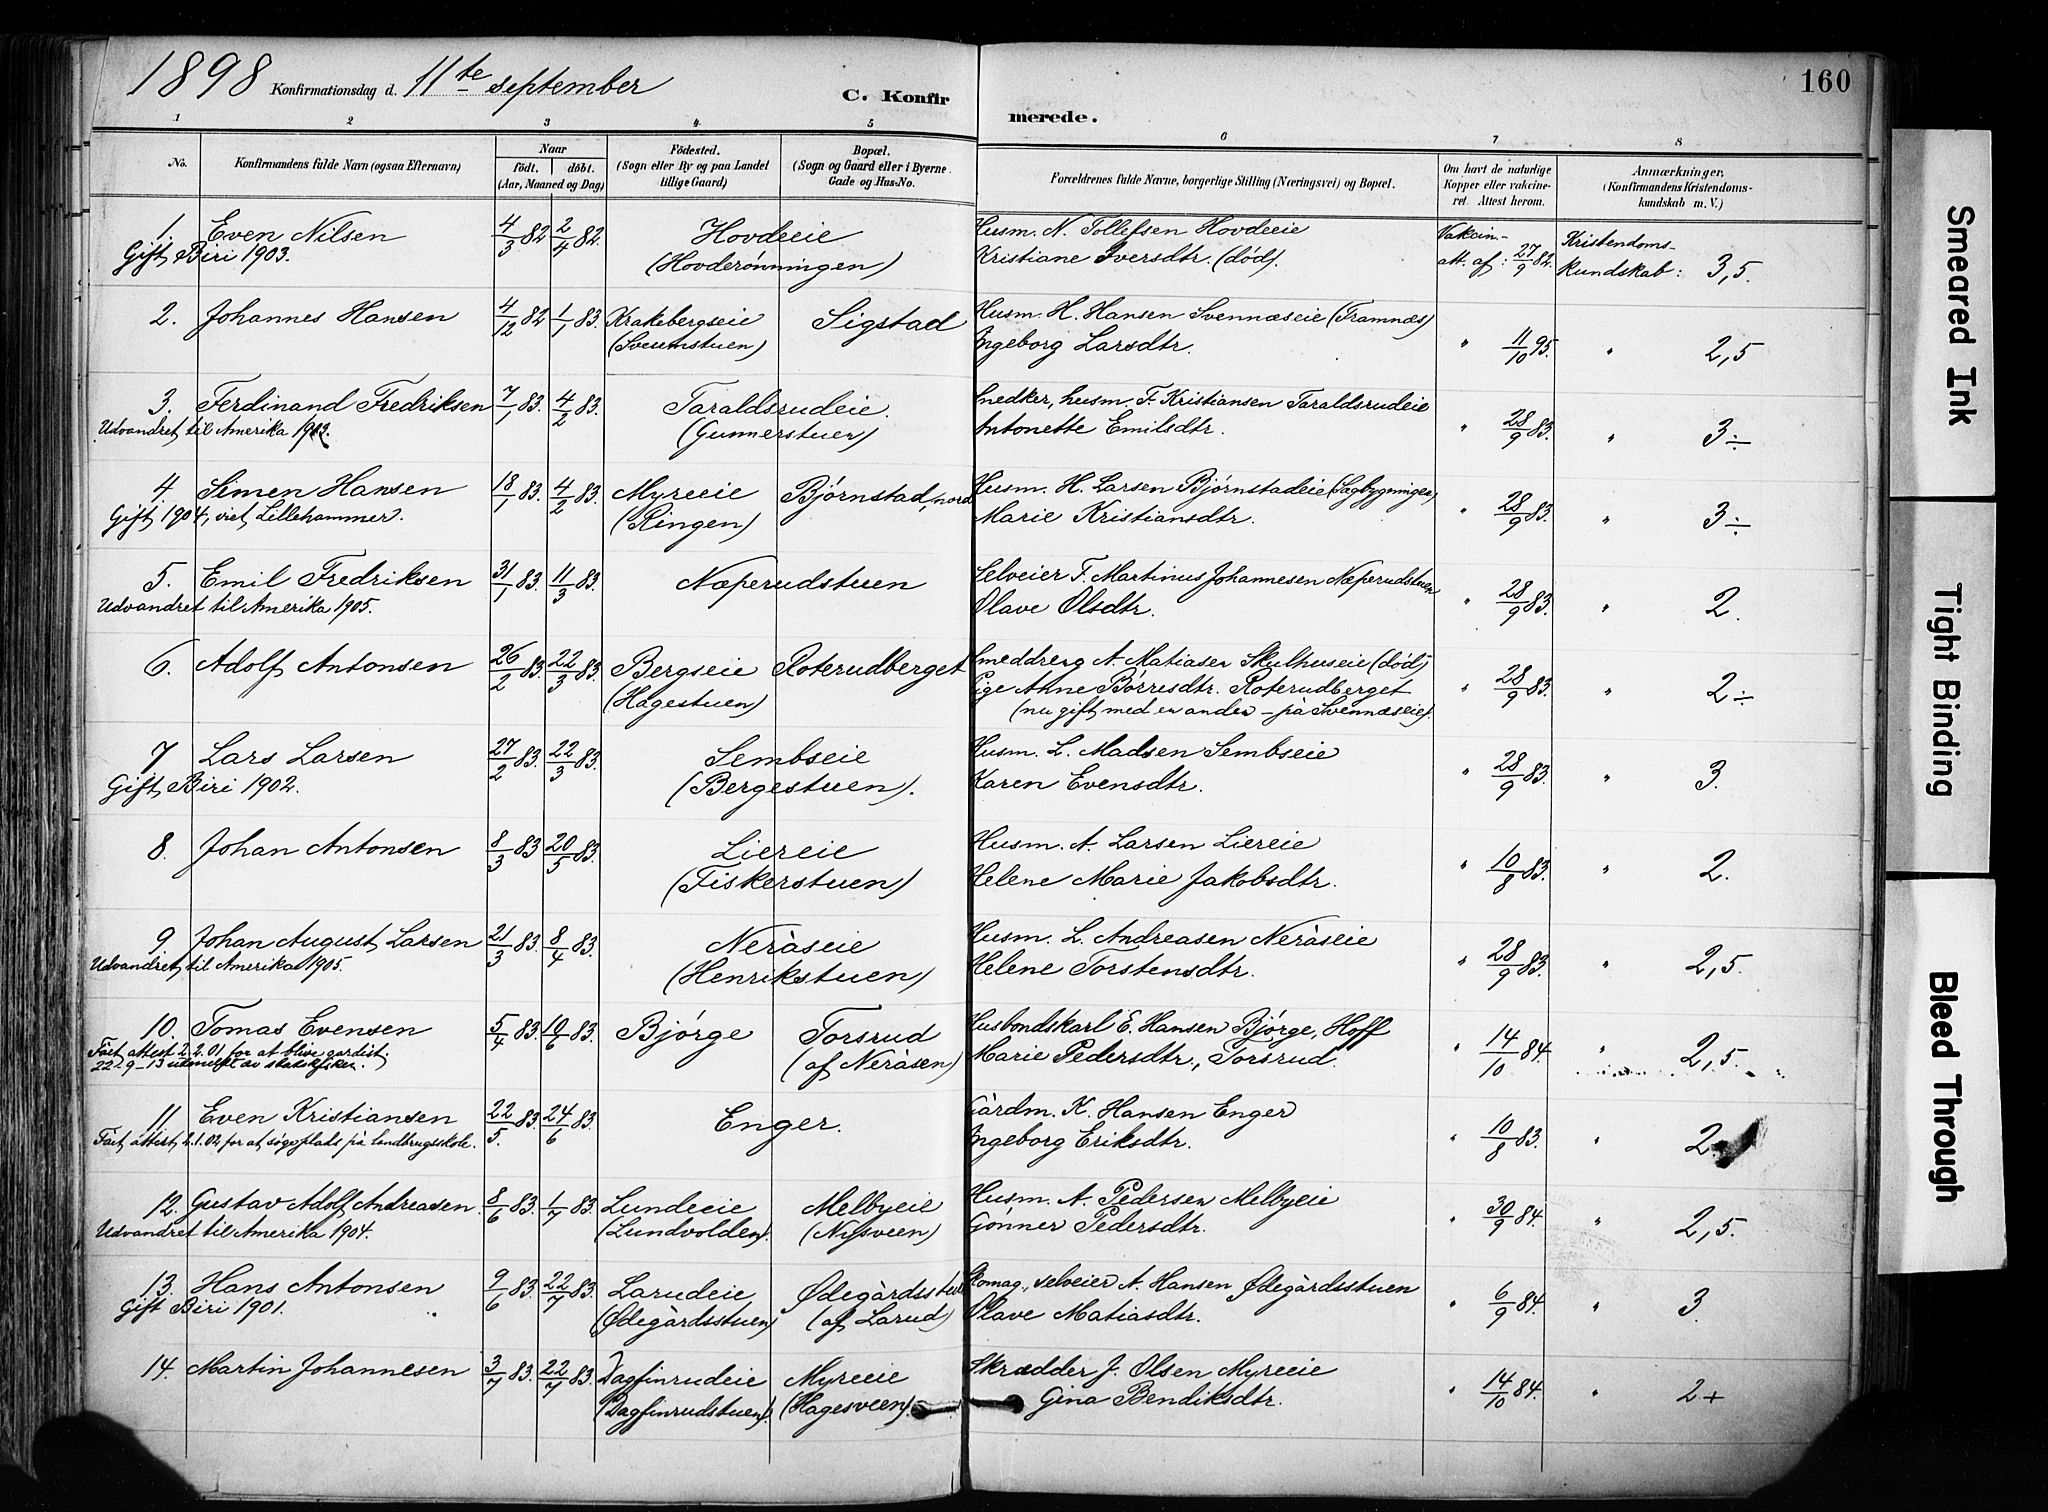 1898 Konfirmationsdag d. 11te september
C. Konfirmerede.
160
1 2 3 4 5 6 7 8
No. Konfirmandens fulde Navn (ogsaa Efternavn) Naar født. døbt. (Aar, Maaned og Dag) Fødested. (Sogn eller By og paa Landet tillige Gaard) Bopæl. (Sogn og Gaard eller i Byerne Gade og Hus-No. Forældrenes fulde Navne, borgerlige Stilling (Næringsvei) og Bopæl. Om havt de naturlige Kopper eller vakcineret. Attest herom. Anmærkninger, (Konfirmandens Kristendomskundskab m. V.)
1. Even Nilsen 4/3 82 2/4 82. Hovdeeie Husm. N. Tollefsen Hovdeeie Vakcin.- Kristendoms-
Gift Biri 1903. (Hovderønningen) Kristiane Iversdtr. (død). att. af: 27/9 82. kundskab: 3,5.
2. Johannes Hansen 4/12 82 1/1 83. Krakebergseie Sigstad Husm. H. Hansen Svennæseie (Framnæs)
(Sveumstuen) Ingeborg Larsdtr. " 11/10 95. " 2,5
3. Ferdinand Fredriksen 7/1 83. 4/2 83. Taraldsrudeie. Snedker, husm. F. Kristiansen Taraldsrudeie
Udvandret til Amerika 1903. (Gunnerstuen) Antonette Emilsdtr. " 28/9 83. " 3 ÷
4. Simen Hansen 18/1 83. 4/2 83. Myreeie Bjørnstad, nord Husm. H. Larsen Bjørnstadeie (Sagbygningen)
Gift 1904, viet Lillehammer. (Ringen) Marie Kristiansdtr. " 28/9 83. " 3 ÷
5. Emil Fredriksen 31/1 83. 11/3 83. Næperudstuen Selveier F. Martinus Johannesen Næperudstuen
Udvandret til Amerika 1905. Olave Olsdtr. " 28/9 83. " 2.
6. Adolf Antonsen 26/2 83. 22/3 83. Bergseie Roterudberget Smeddreng A. Matiasen Skulhuseie (død)
(Hagestuen) Pige Anne Børresdtr. Roterudberget " 28/9 83. " 2 ÷
(nu gift med en anden - på Svennæseie).
7 Lars Larsen 27/2 83. 22/3 83. Sembseie Husm. L. Madsen Sembseie
Gift Biri 1902. (Bergestuen). Karen Evensdtr. " 28/9 83. " 3.
8. Johan Antonsen 8/3 83. 20/5 83. Liereie Husm. A. Larsen Liereie
(Fiskerstuen) Helene Marie Jakobsdtr. " 10/8 83. " 2.
9. Johan August Larsen 21/3 83. 8/4 83. Neråseie Husm. L. Andreasen Neråseie
Udvandret til Amerika 1905. (Henrikstuen) Helene Torstensdtr. " 28/9 83. " 2,5.
10. Tomas Evensen 5/4 83. 19/6 83. Bjørge Torsrud Husbondskarl E. Hansen Bjørge, Hoff
Fået attest 2.2.01 for at blive gardist. (af Neråsen) Marie Pedersdtr., Torsrud. " 14/10 84. " 2,5.
22-9-13 utmeldt av statskirken.
11 Even Kristiansen 22/5 83. 24/6 83. Enger. Gårdm. K. Hansen Enger
Fået attest 2.1.02 for at søge plads på landbrugsskole. Ingeborg Eriksdtr. " 10/8 83. " 2
12. Gustav Adolf Andreasen. 8/6 83. 1/7 83. Lundeeie Melbyeie Husm. A. Pedersen Melbyeie
Udvandret til Amerika 1904. (Lundvolden). (Nysveen) Gønner Pedersdtr. " 30/9 84. " 2,5.
13. Hans Antonsen 9/6 83. 22/7 83. Larudeie Ødegårdsstuen Skomag., selveier A. Hansen Ødegårdsstuen
Gift Biri 1901. (Ødegårdsstuen) (af Larud) Olave Matiasdtr. " 6/9 84. " 3.
14. Martin Johannesen 3/7 83. 22/7 83. Dagfinrudeie Myreeie Skrædder J. Olsen Myreeie
(Dagfinrudstuen). (Hagesveen). Gina Bendiksdtr. " 14/10 84. " 2+
Smeared Ink
Tight Binding
Bleed Through